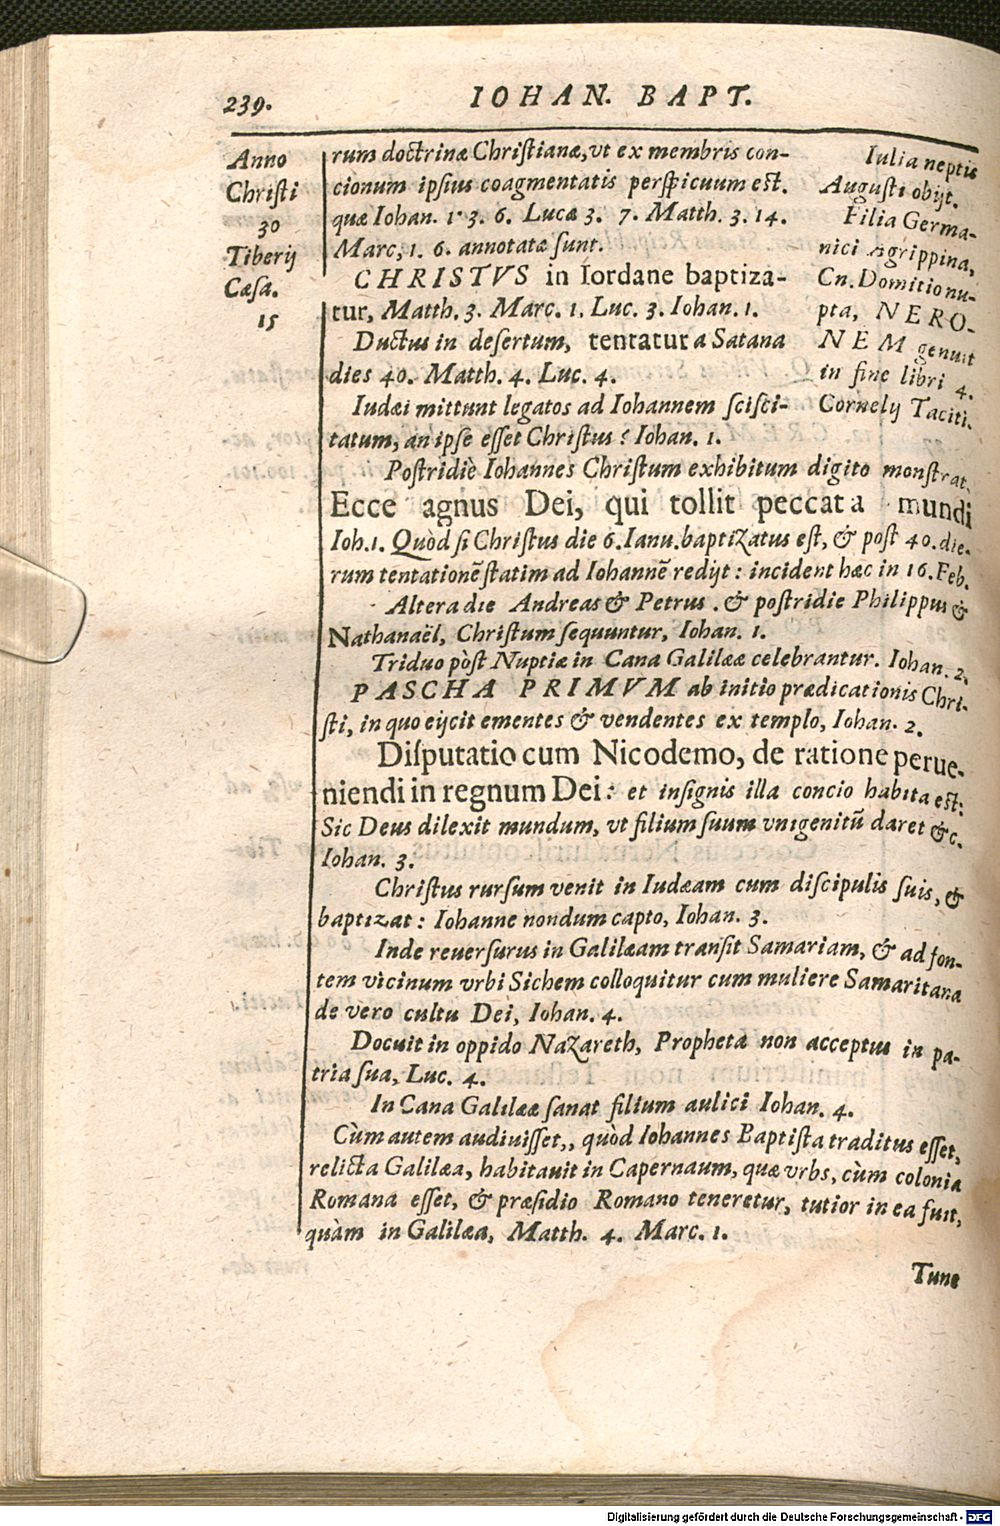 239.
IOHAN. BAPT.
Anno
Christi
30
Tiberij
Cæsa.
15
rum doctrinæ Christianæ, vt ex membris con-
cionum ipsius coagmentatis perspicuum est.
quæ Iohan. 1. 3. 6. Lucæ 3. 7. Matth. 3. 14.
Marc, 1. 6. annotatæ sunt.
CHRISTVS in Iordane baptiza-
tur, Matth. 3. Marc. 1. Luc. 3. Iohan. 1.
Ductus in desertum, tentatur a Satana
dies 40. Matth. 4. Luc. 4.
Iudæi mittunt legatos ad Iohannem scisci-
tatum, an ipse esset Christus? Iohan. 1.
Postridiè Iohannes Christum exhibitum digito monstrat,
Ecce agnus Dei, qui tollit peccata mundi
Ioh. 1. Quòd si Christus die 6. Ianu. baptizatus est, & post 40. die-
rum tentationē statim ad Iohannē redijt: incident hæc in 16. Feb.
Altera die Andreas & Petrus. & postridie Philippus &
Nathanaël, Christum sequuntur, Iohan. 1.
Triduo pòst Nuptiæ in Cana Galilææ celebrantur. Iohan. 2,
PASCHA PRIMVM ab initio prædicationis Chri-
sti, in quo eijcit ementes & vendentes ex templo, Iohan. 2.
Disputatio cum Nicodemo, de ratione perue-
niendi in regnum Dei: et insignis illa concio habita est:
Sic Deus dilexit mundum, vt filium suum vnigenitū daret &c.
Iohan. 3.
Christus rursum venit in Iudæam cum discipulis suis, &
baptizat: Iohanne nondum capto, Iohan. 3.
Inde reuersurus in Galilæam transit Samariam, & ad fon-
tem vicinum vrbi Sichem colloquitur cum muliere Samaritana
de vero cultu Dei, Iohan. 4.
Docuit in oppido Nazareth, Propheta non acceptus in pa-
tria sua, Luc. 4.
In Cana Galilææ sanat filium aulici Iohan. 4.
Cùm autem audiuisset,, quòd Iohannes Baptista traditus esset,
relicta Galilæa, habitauit in Capernaum, quæ vrbs, cùm colonia
Romana esset, & præsidio Romano teneretur, tutior in ea fuit,
quàm in Galilæa, Matth. 4. Marc. 1.
Tunc
Iulia neptis
Augusti obijt.
Filia Germa-
nici Agrippina,
Cn. Domitio nu-
pta, NERO-
NEM genuit
in fine libri 4.
Cornelij Taciti.
Digitalisierung gefördert durch die Deutsche Forschungsgemeinschaft - DFG